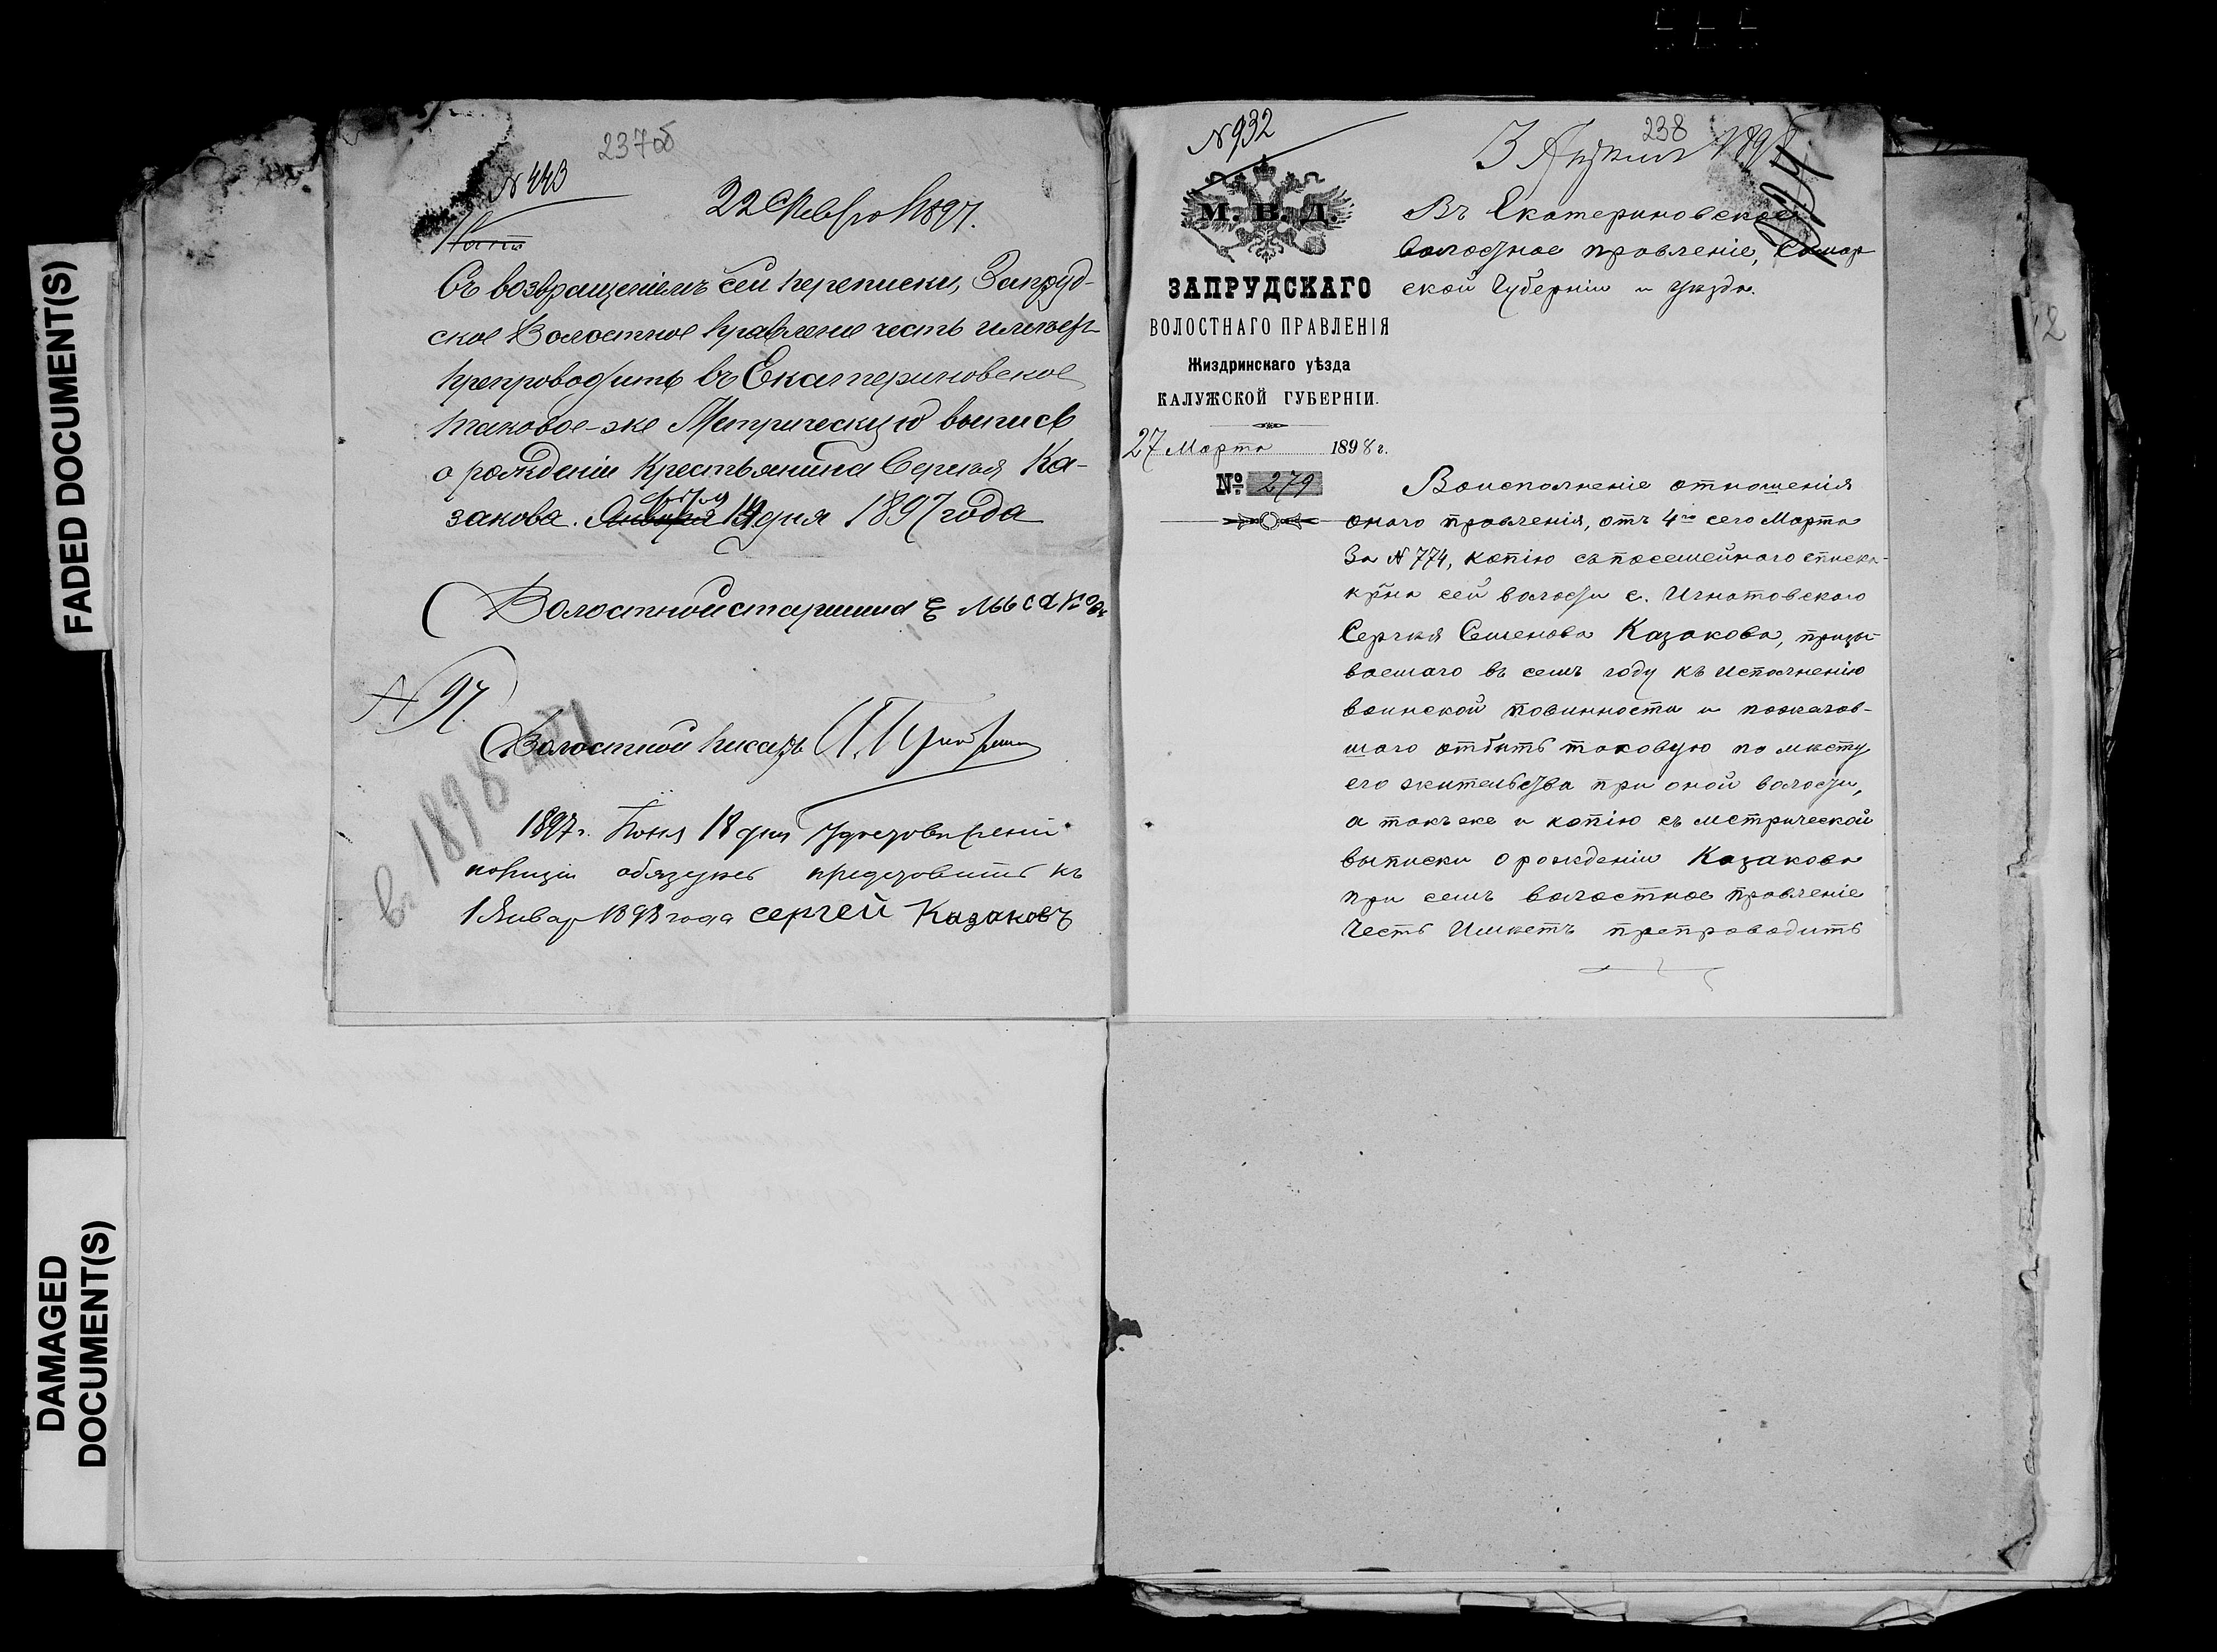 FADED DOCUMENT(S)
DAMAGED
DOCUMENT(S)
237об
N 443
22 Февр 1897.
Съ возвращеніемъ сей переписки, Запруд-
ское Волостное Правленіе честь имѣетъ
препроводить въ Екатериновское
таковое-же Метрическую выпись
о рожденіи Крестьянина Сергѣя Ка-
закова. Января 19 дня 1897 года
Волостной старшина Е Мысаков
N 97.
Волостной писарь
въ 1898
1897 г. Іюня 18 дня
обязуюсь представить къ
1 Январ 1898 года Сергей Казаковъ
N 932
238
3 Апреля 1898
М. В. Д.
ЗАПРУДСКАГО
ВОЛОСТНАГО ПРАВЛЕНІЯ
Жиздринскаго уѣзда
КАЛУЖСКОЙ ГУБЕРНІИ.
27 Марта 1898 г.
№ 279
Въ Екатериновское
волостное правленіе, Самар
ской Губерніи и уѣзда.
Воисполненіе отношенія
онаго правленія, отъ 4го сего Марта
За N 774, копію съ посемейнаго списка
крна сей волости с. Игнатовскаго
Сергѣя Семенова Казакова, призы
ваемаго въ семъ году къ исполненію
воинской повинности и пожелав-
шаго отбыть таковую по мѣсту
его жительства при оной волости,
а такъ же и копію съ метрической
выписки о рожденіи Казакова
при семъ волостное правленіе
Честь Имѣетъ препроводить